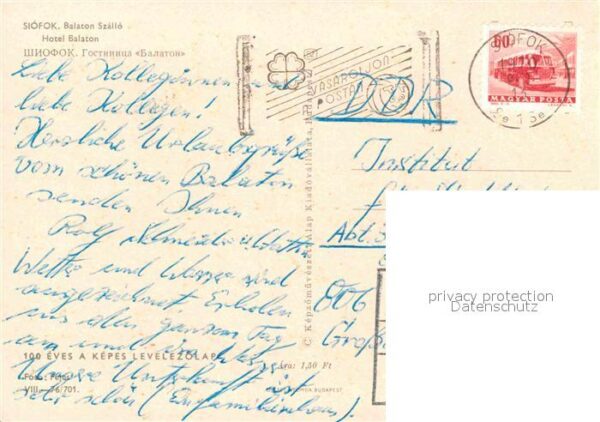 SIÓFOK, Balaton Szálló
Hotel Balaton
ШИОФОК. Гостиница «Балатон»
Liebe Kolleginnen und
liebe Kollegen!
Herzliche Urlaubsgrüße
vom schönen Balaton
senden Ihnen
Rolf
Wetter und Wasser sind
ausgezeichnet. Erholen
uns den ganzen Tag
Unsere Unterkunft ist
sehr schön (Einfamilienhaus).
100 ÉVES A KÉPES LEVELEZŐLAP
VIII.—76/701.
Ára: 1,50 Ft
BUDAPEST
© Képzőművészeti Alap Kiadóvállalata, Budapest
VÁSÁROLJON
POSTÁN
SIÓFOK
60
MAGYAR POSTA
DDR
Institut
Abt.
806
privacy protection
Datenschutz